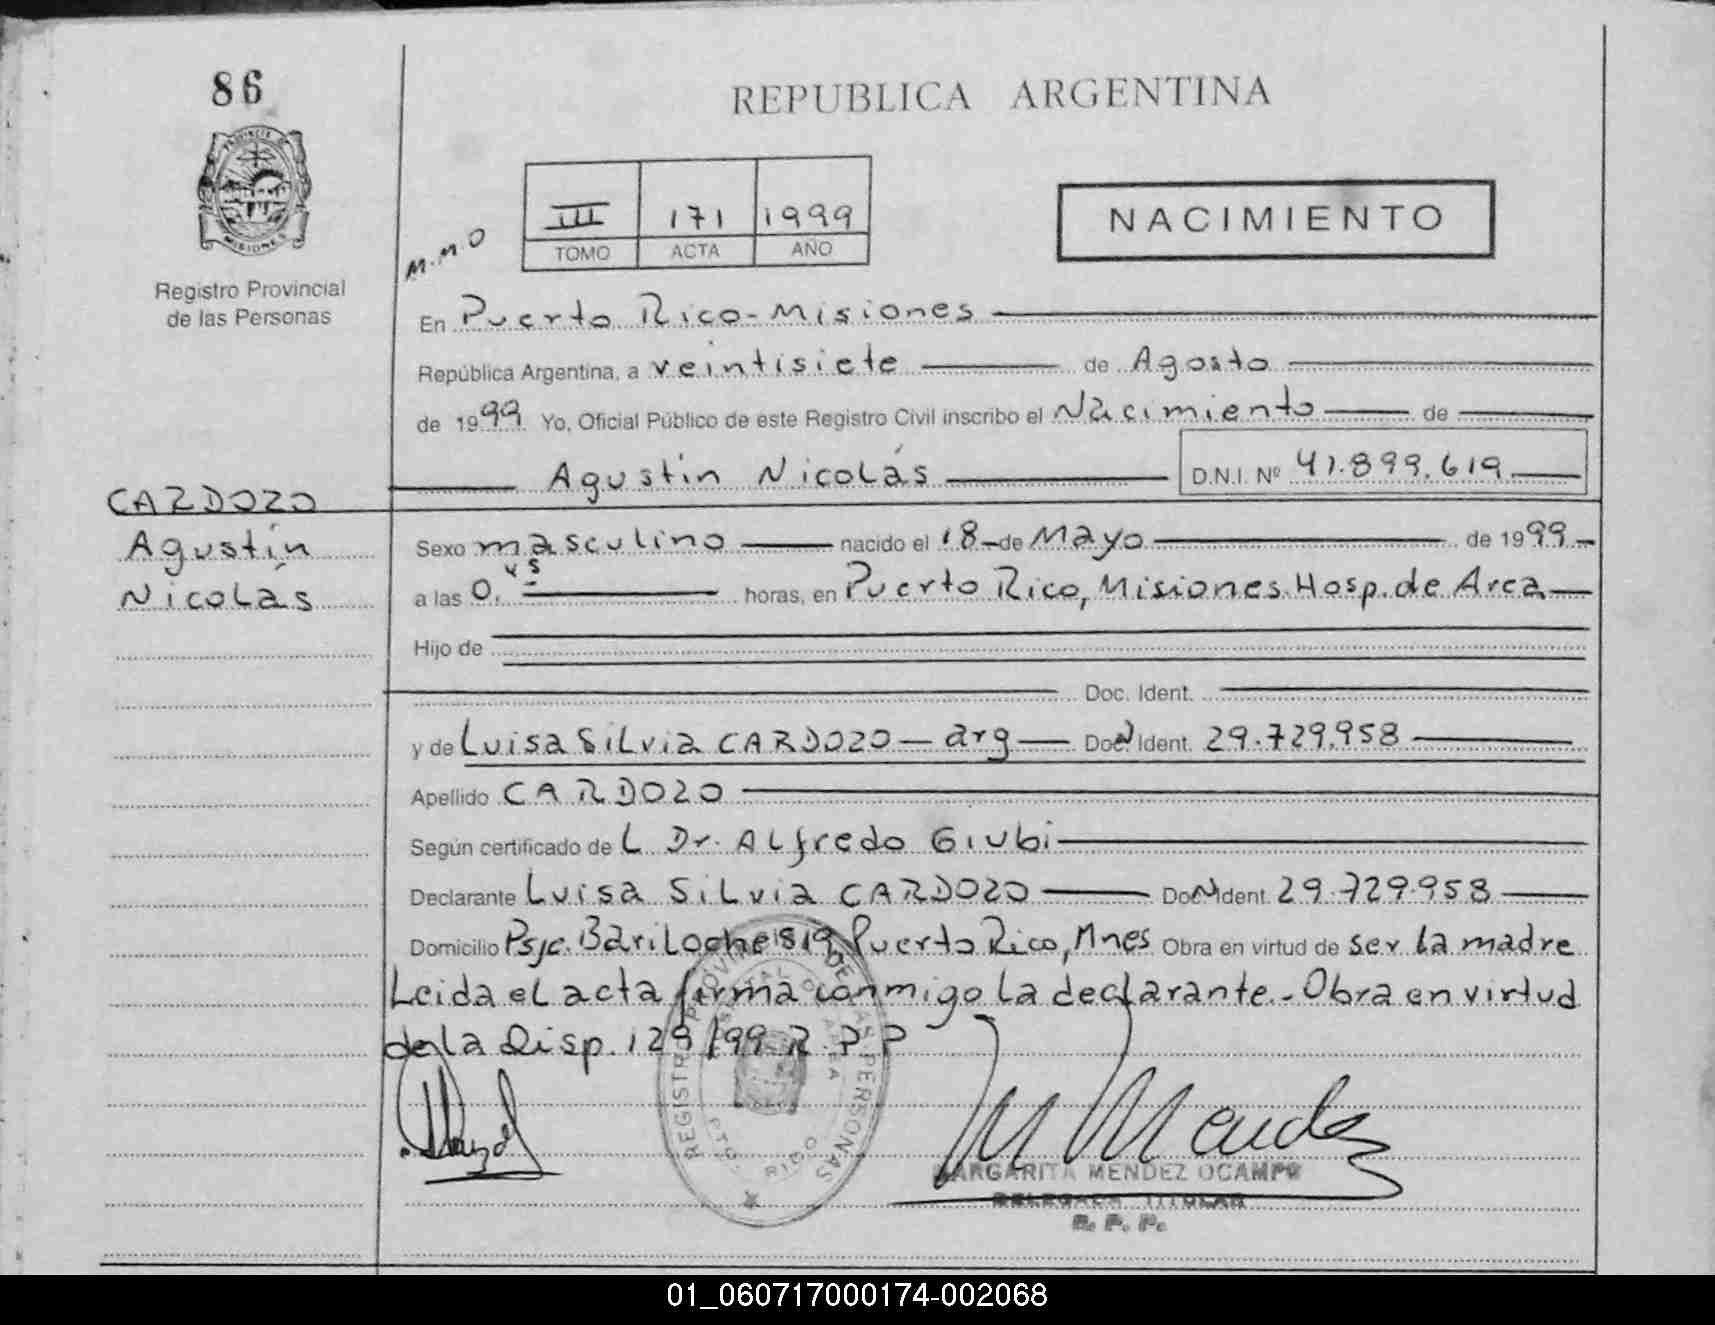 86
REPUBLICA ARGENTINA
PROVINCIA DE
MISIONES
Registro Provincial
de las Personas
M.M.O
III 171 1999
TOMO ACTA AÑO
NACIMIENTO
En Puerto Rico-Misiones
República Argentina, a veintisiete de Agosto
de 1999 Yo, Oficial Público de este Registro Civil inscribo el Nacimiento de
Agustín Nicolás D.N.I. Nº 41.899.619
CARDOZO
Agustín
Nicolás
Sexo masculino nacido el 18 de Mayo de 1999
a las 0,45 horas, en Puerto Rico, Misiones. Hosp. de Area
Hijo de
Doc. Ident.
y de Luisa Silvia CARDOZO - arg Doc Ident. 29.729.958
Apellido CARDOZO
Según certificado de L Dr. Alfredo Giubi
Declarante Luisa Silvia CARDOZO Doc Ident. 29.729.958
Domicilio Psje. Bariloche 819 Puerto Rico, Mnes Obra en virtud de ser la madre
Leida el acta firma conmigo la declarante.- Obra en virtud
de la Disp. 129/99 R.P.P
REGISTRO PROVINCIAL DE LAS PERSONAS
PTO. RICO
M Mendez
MARGARITA MENDEZ OCAMPO
DELEGADA TITULAR
R. P. P.
01_060717000174-002068